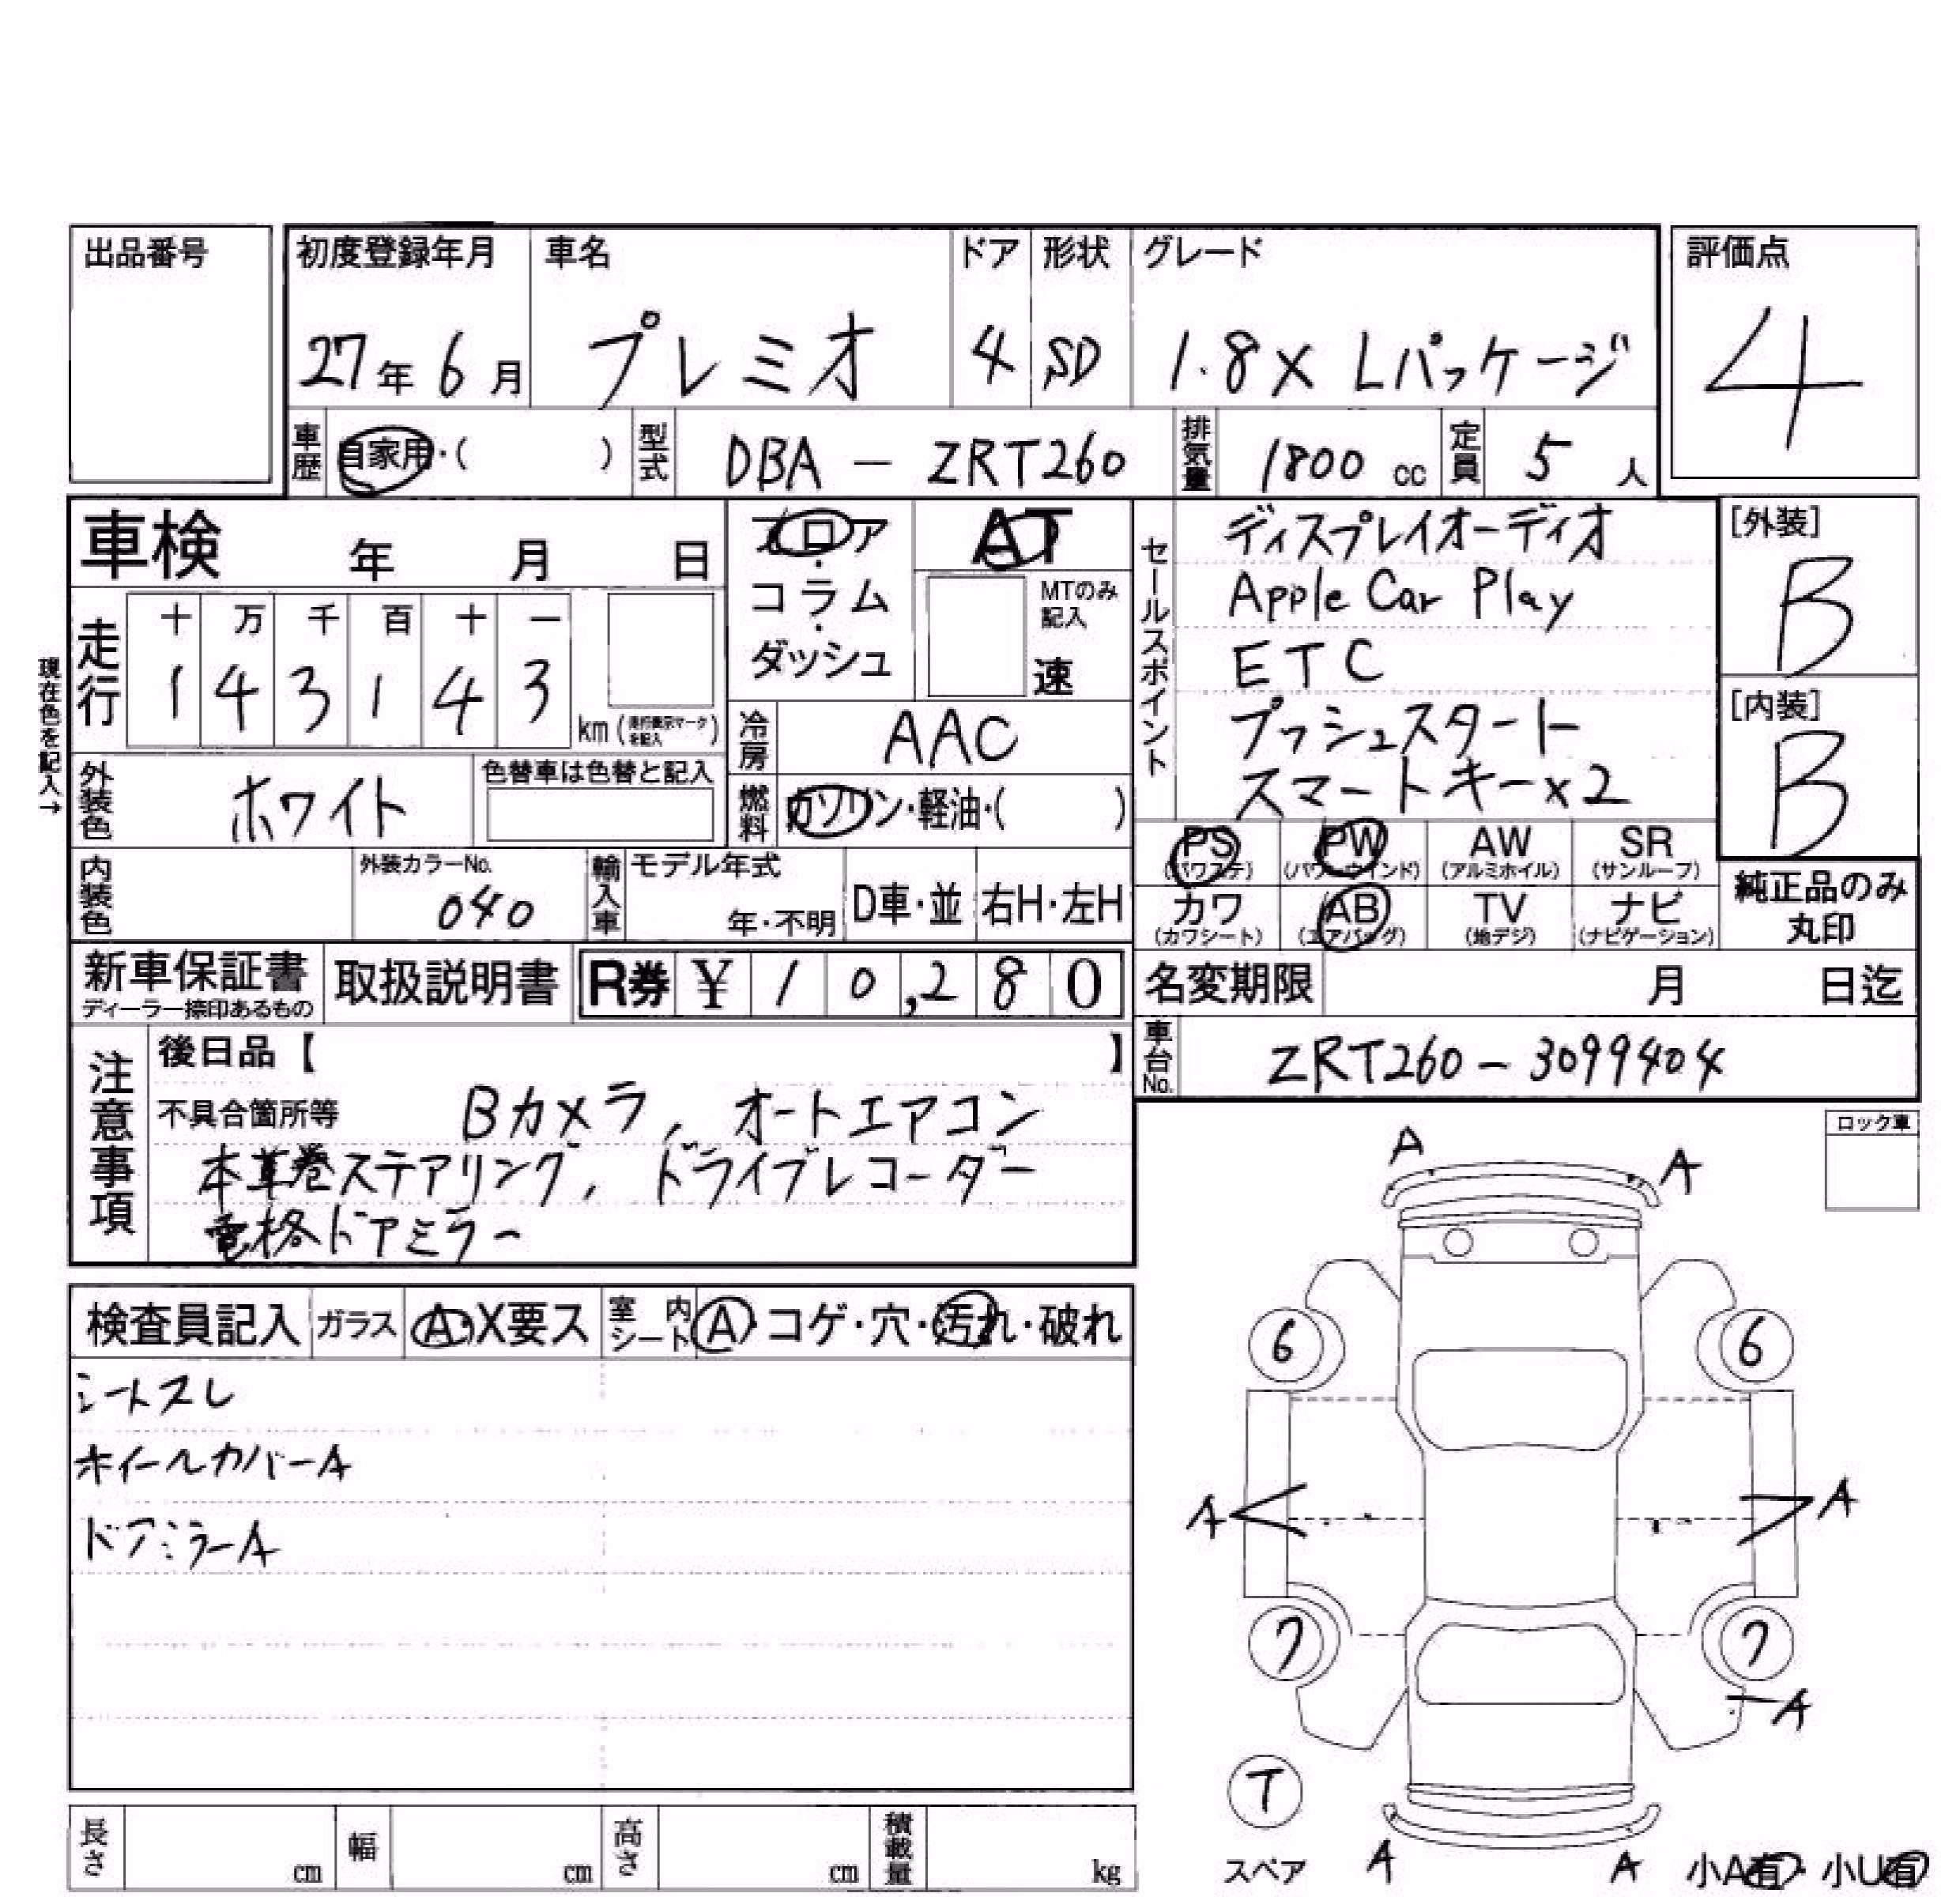 出品番号
初度登録年月 車名 ドア 形状 グレード 評価点
27年 6月 プレミオ 4 SD 1.8X Lパッケージ 4
車歴 自家用・( ) 型式 DBA - ZRT260 排気量 1800 cc 定員 5 人
車検 年 月 日
フロア・コラム・ダッシュ
AT
MTのみ記入
速
セールスポイント
ディスプレイオーディオ
Apple Car Play
ETC
プッシュスタート
スマートキーx2
[外装]
B
[内装]
B
現在色を記入→
走行 十 万 千 百 十 一
1 4 3 1 4 3 km
冷房 AAC
外装色 ホワイト 色替車は色替と記入
燃料 ガソリン・軽油・( )
内装色 外装カラーNo. 040 輸入車 モデル年式 年・不明 D車・並 右H・左H
PS (パワステ) PW (パワーウインド) AW (アルミホイル) SR (サンルーフ)
カワ (カワシート) AB (エアバッグ) TV (地デジ) ナビ (ナビゲーション)
純正品のみ
丸印
新車保証書 ディーラー捺印あるもの 取扱説明書 R券 ¥ 10,280
名変期限 月 日迄
車台No. ZRT260-3099404
注意事項
後日品【 】
不具合箇所等 Bカメラ, オートエアコン
本革巻ステアリング, ドライブレコーダー
電格ドアミラー
ロック車
検査員記入 ガラス A・X要ス 室内シート A・コゲ・穴・汚れ・破れ
シートスレ
ホイールカバーA
ドアミラーA
A A
6 6
A A
7 7
A
T
スペア A A 小A有・小U有
長さ cm 幅 cm 高さ cm 積載量 kg